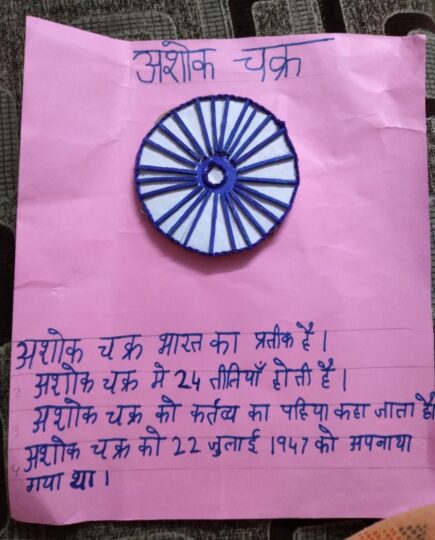 अशोक चक्र
अशोक चक्र भारत का प्रतीक है।
2 अशोक चक्र मे 24 तीलियाँ होती है।
3 अशोक चक्र को कर्तव्य का पहिया कहा जाता है।
4 अशोक चक्र को 22 जुलाई 1947 को अपनाया
गया था।